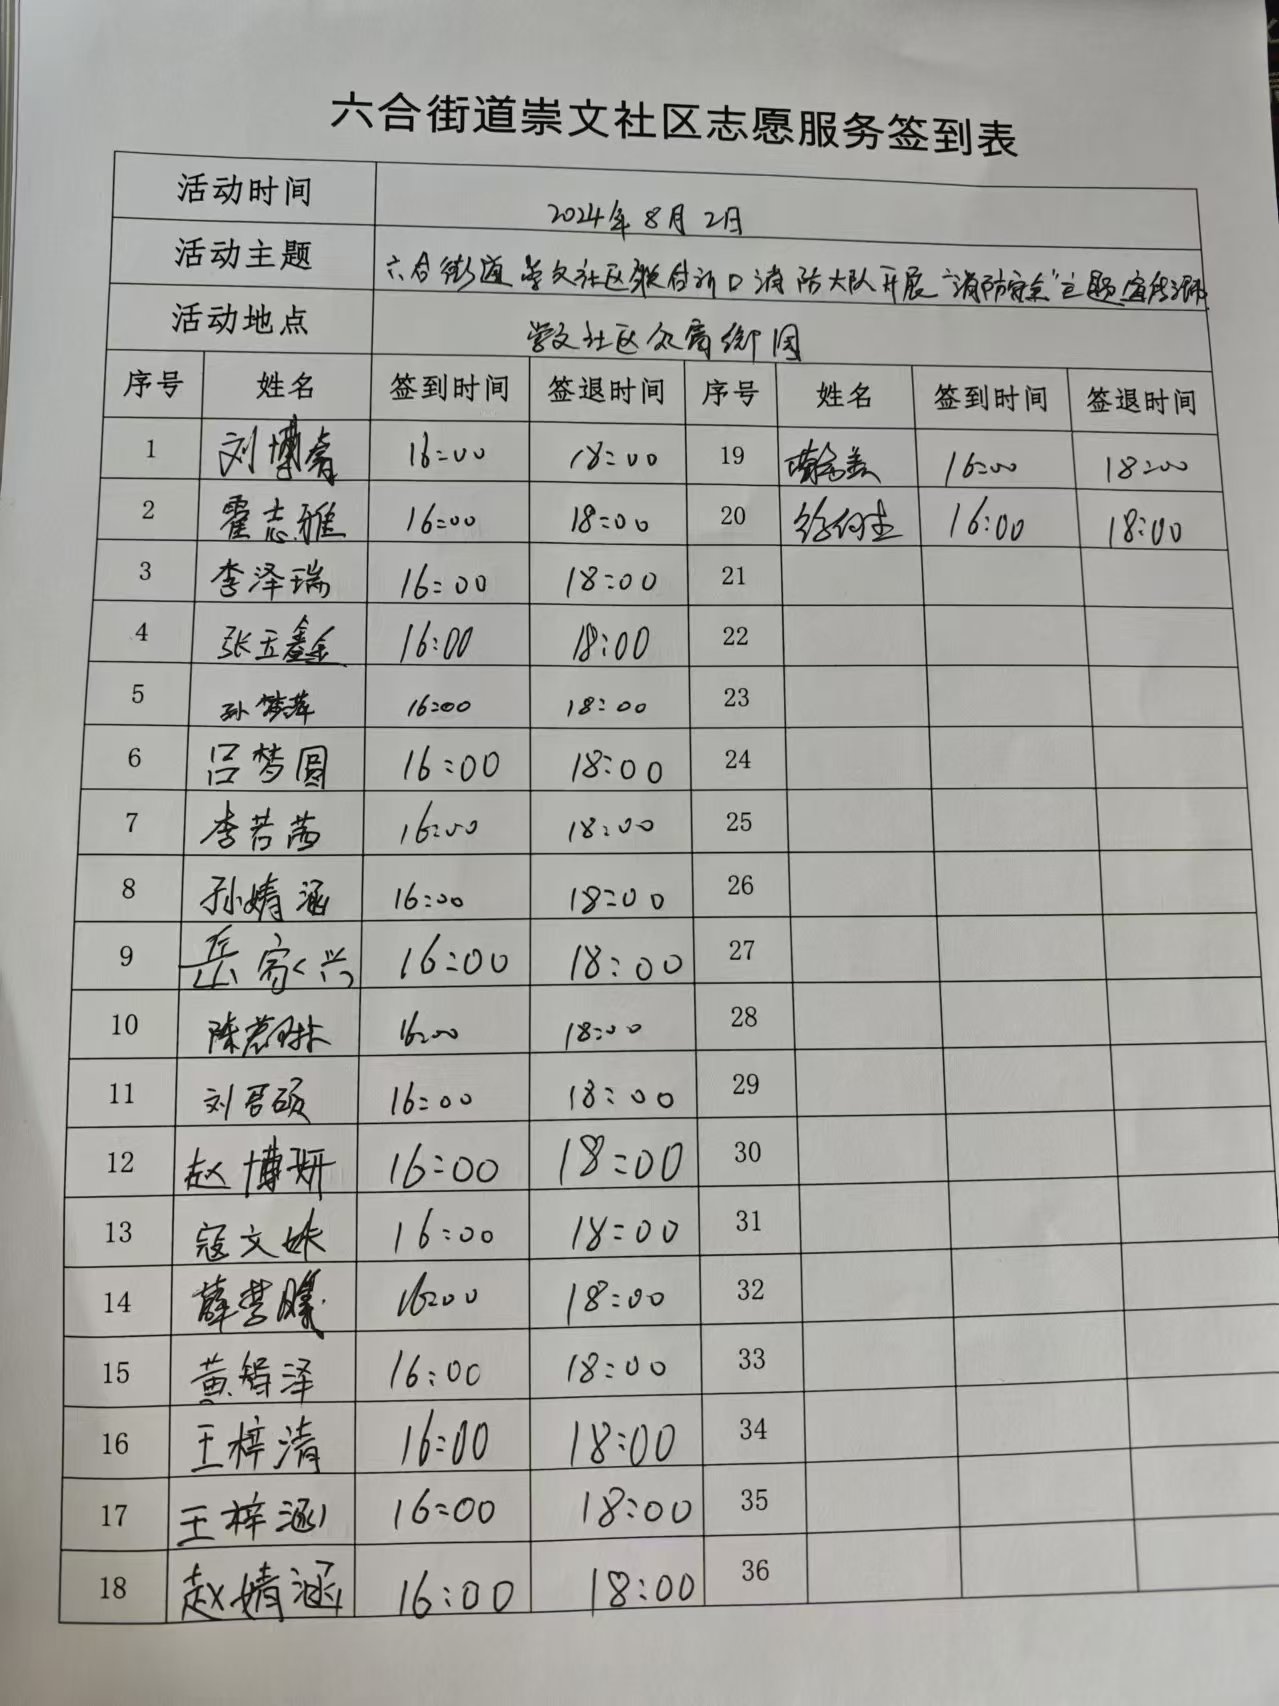 六合街道崇文社区志愿服务签到表
活动时间 2024年8月2日
活动主题 六合街道崇文社区联合 消防大队开展"消防安全"主题宣传活动
活动地点 崇文社区 御园
序号 姓名 签到时间 签退时间 序号 姓名 签到时间 签退时间
1 刘博睿 16:00 18:00 19 16:00 18:00
2 霍志雅 16:00 18:00 20 16:00 18:00
3 李泽瑞 16:00 18:00 21
4 张玉鑫 16:00 18:00 22
5 孙梦萍 16:00 18:00 23
6 吕梦圆 16:00 18:00 24
7 李若茜 16:00 18:00 25
8 孙婧涵 16:00 18:00 26
9 岳家兴 16:00 18:00 27
10 陈慧琳 16:00 18:00 28
11 刘君硕 16:00 18:00 29
12 赵博妍 16:00 18:00 30
13 寇文姝 16:00 18:00 31
14 薛梦曦 16:00 18:00 32
15 黄智泽 16:00 18:00 33
16 王梓清 16:00 18:00 34
17 王梓涵 16:00 18:00 35
18 赵婧涵 16:00 18:00 36